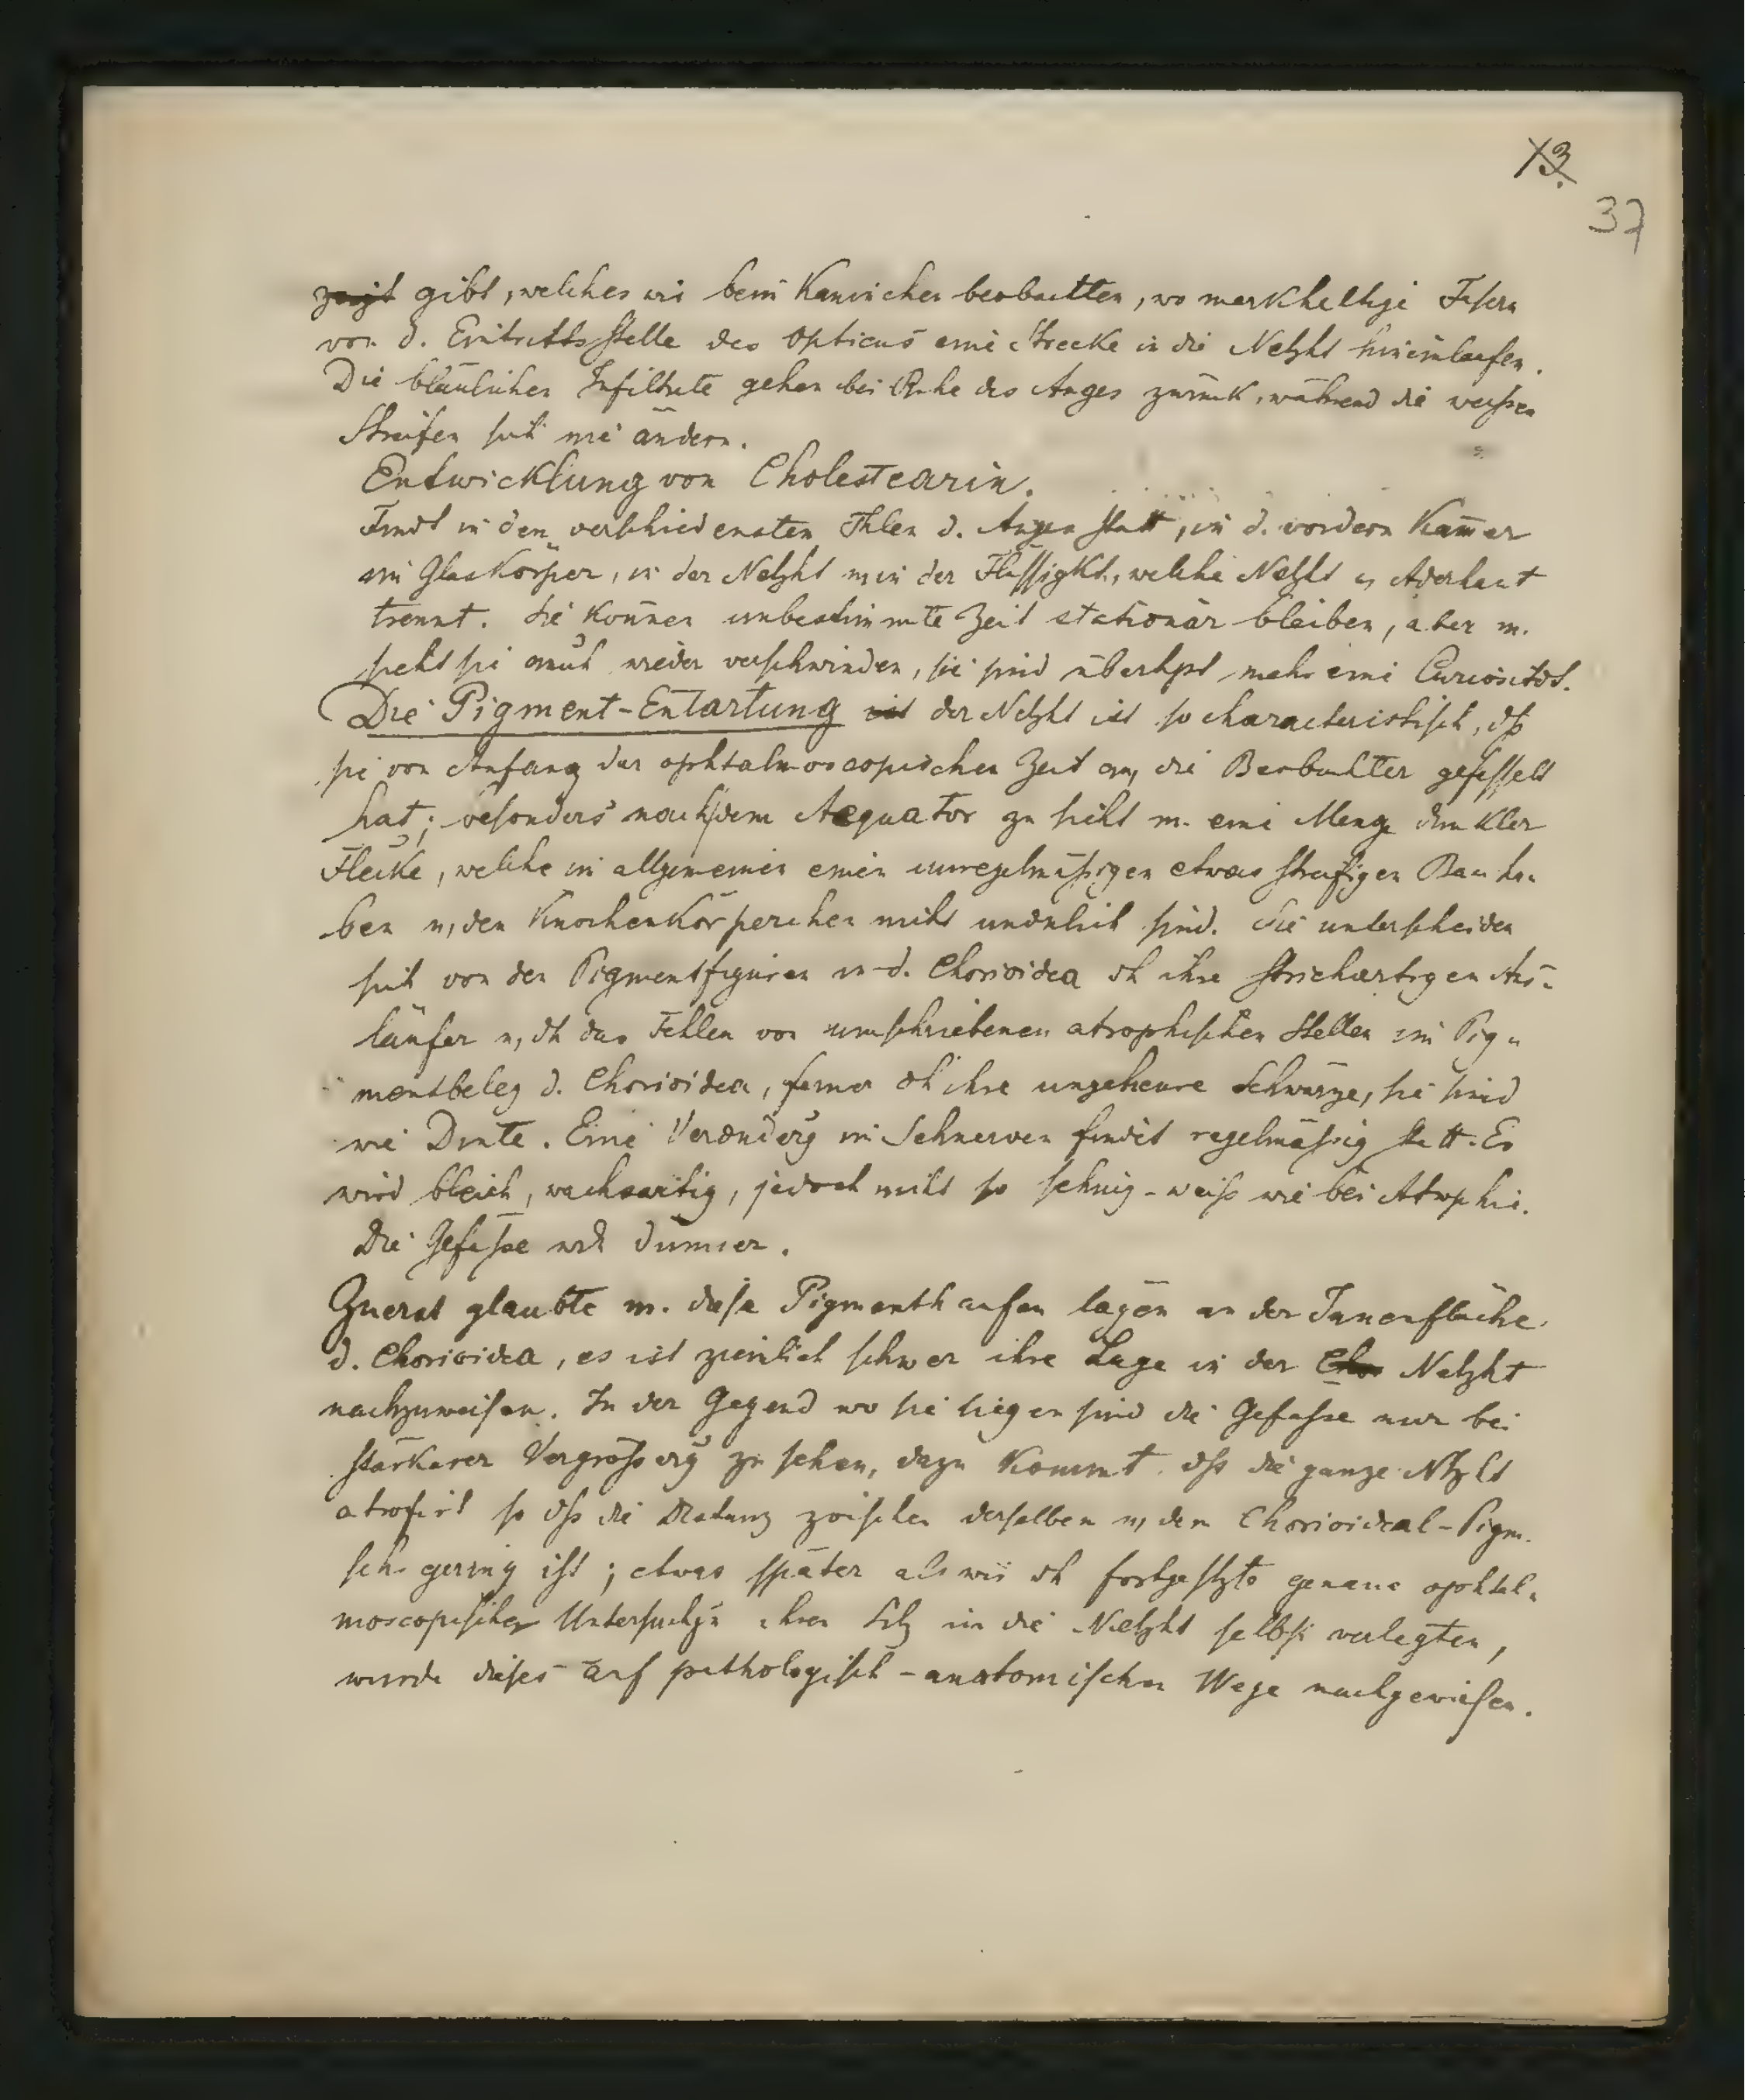 13.
37
zeigt gibt, welches wir beim Kaninchen beobachten, wo markhaltige Fasern
von d. Eintrittsstelle des Opticus eine Strecke in die Netzht hineinlaufen.
Die bläulichen Infiltrate gehen bei Ruhe des Auges zurück, während die weissen
Streifen sich nie ändern.
Entwicklung von Cholestearin.
Findt in den verschiedensten Thlen d. Auges statt, in d. vordern Kam̅er
im Glaskörper, in der Netzht u, in der Flüssigkt, welche Netzht u, Aderhaut
trennt. Sie kön̅en unbestimmte Zeit stationär bleiben, aber m.
sieht sie auch wieder verschwinden, sie sind überhpt mehr eine Curiosität.
Die Pigment-Entartung ist der Netzht ist so characteristisch, dß
sie von Anfang der ophtalmoscopischen Zeit an, die Beobachter gefesselt
hat; besonders nach dem Aequator zu sieht m. eine Menge dunkler
Flecke, welche im allgemeinen einen unregelmäßigen etwas streifigen Bau ha-
ben u, den Knochenkörperchen nicht unähnlich sind. Sie unterscheiden
sich von den Pigmentfiguren in d. Chorioidea dh ihre strichartigen Aus-
läufer u, dh das Fehlen von umschriebenen atrophischen Stellen im Pig-
mentbeleg d. Chorioidea, ferner dh ihre ungeheure Schwärze, sie sind
wie Dinte. Eine Veränderg im Sehnerven findet regelmäßig statt. Es
wird bleich, wachsartig, jedoch nicht so sehnig-weiß wie bei Atrophie.
Die Gefässe wdn dünner.
Zuerst glaubte m. diese Pigmenthaufen lägen an der Innenfläche
d. Chorioidea, es ist ziemlich schwer ihre Lage in der Cho Netzht
nachzuweisen. In der Gegend wo sie liegen sind die Gefässe nur bei
stärkerer Vergrößerg zu sehen, dazu kommt dß die ganze Ntzht
atrofirt so dß die zwischen derselben u, dem Chorioideal-Pigm.
sehr gering ist; etwas später als wir dh fortgesetzte genaue ophtal-
moscopische Untersuchgn ihren Sitz in die Netzht selbst verlegten,
wurde dieses auf pathologisch-anatomischen Wege nachgewiesen.